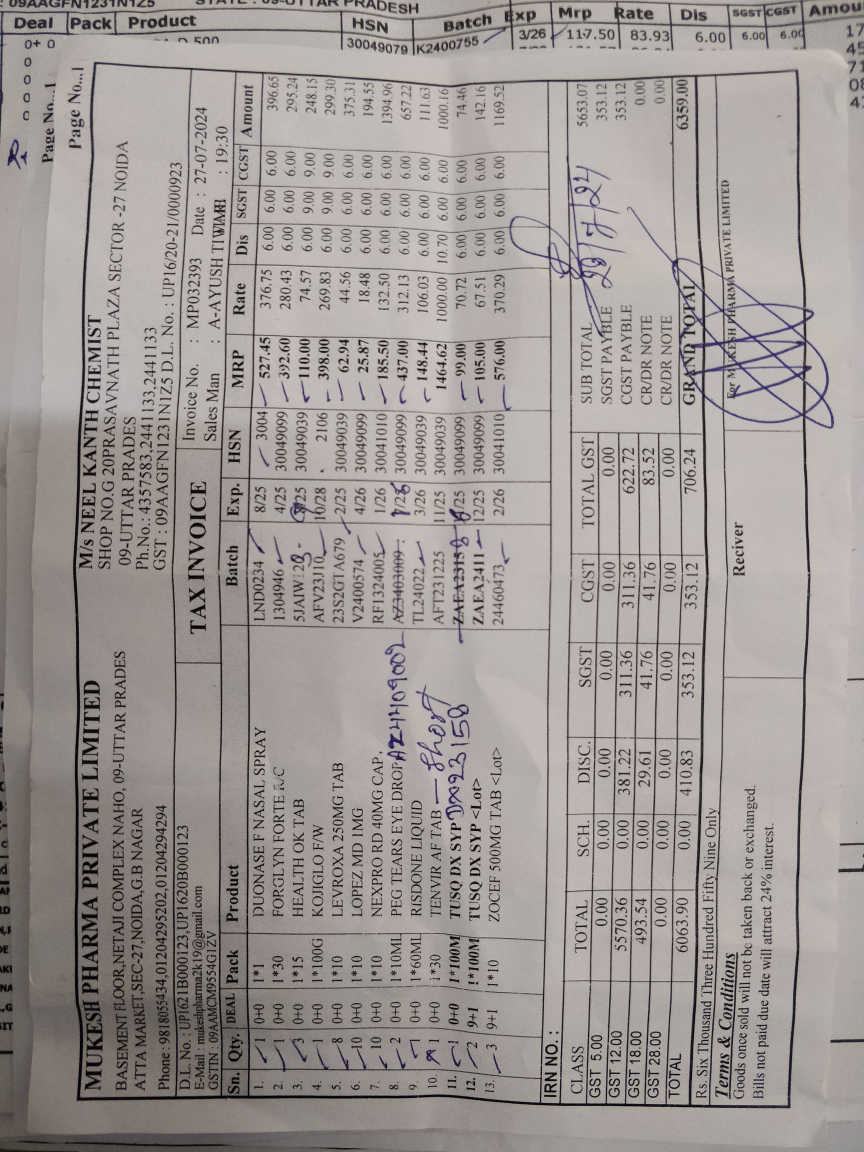 : 09AAGFN1231N1Z5 STATE : 09-UTTAR PRADESH
Deal Pack Product HSN Batch Exp Mrp Rate Dis SGST CGST Amou
0+ 0 500 30049079 K2400755 3/26 117.50 83.93 6.00 6.00 6.00 17
Page No...1
Page No...1
MUKESH PHARMA PRIVATE LIMITED
BASEMENT FLOOR,NETAJI COMPLEX NAHO, 09-UTTAR PRADES
ATTA MARKET,SEC-27,NOIDA,G.B NAGAR
Phone : 9818055434,01204295202,01204294294
D.L. No. : UP1621B000123,UP1620B000123
E-Mail : mukeshpharma2k19@gmail.com
GSTIN : 09AAMCM9554G1ZV
M/s NEEL KANTH CHEMIST
SHOP NO.G 20PRASAVNATH PLAZA SECTOR -27 NOIDA
09-UTTAR PRADES
Ph.No.: 4357583,2441133,2441133
GST : 09AAGFN1231N1Z5 D.L. No. : UP16/20-21/0000923
TAX INVOICE
Invoice No. : MP032393 Date : 27-07-2024
Sales Man : A-AYUSH TIWARI : 19:30
Sn. Qty. DEAL Pack Product Batch Exp. HSN MRP Rate Dis SGST CGST Amount
1. 1 0+0 1*1 DUONASE F NASAL SPRAY LND0234 8/25 3004 527.45 376.75 6.00 6.00 6.00 396.65
2. 1 0+0 1*30 FORGLYN FORTE R/C 1304946 4/25 30049099 392.60 280.43 6.00 6.00 6.00 295.24
3. 3 0+0 1*15 *HEALTH OK TAB /25 30049039 110.00 74.57 6.00 9.00 9.00 248.15
4. 1 0+0 1*100G KOJIGLO F/W AFV23J10 10/28 2106 398.00 269.83 6.00 9.00 9.00 299.30
5. 8 0+0 1*10 LEVROXA 250MG TAB 23S2GTA679 2/25 30049039 62.94 44.56 6.00 6.00 6.00 375.31
6. 10 0+0 1*10 LOPEZ MD 1MG V2400574 4/26 30049099 25.87 18.48 6.00 6.00 6.00 194.55
7. 10 0+0 1*10 NEXPRO RD 40MG CAP. RF1324005 1/26 30041010 185.50 132.50 6.00 6.00 6.00 1394.96
8. 2 0+0 1*10ML PEG TEARS EYE DROP AZ4409002 AZ3403009 30049099 437.00 312.13 6.00 6.00 6.00 657.22
9. 1 0+0 1*60ML RISDONE LIQUID TL24022 3/26 30049039 148.44 106.03 6.00 6.00 6.00 111.63
10. 1 0+0 1*30 TENVIR AF TAB - Short AFT231225 11/25 30049039 1464.62 1000.00 10.70 6.00 6.00 1000.16
11. 1 0+0 1*100M TUSQ DX SYP DX23158 ZAEA2315 /25 30049099 99.00 70.72 6.00 6.00 6.00 74.46
12. 2 9+1 1*100M TUSQ DX SYP <Lot> ZAEA2411 12/25 30049099 105.00 67.51 6.00 6.00 6.00 142.16
13. 3 9+1 1*10 ZOCEF 500MG TAB <Lot> 24460473 2/26 30041010 576.00 370.29 6.00 6.00 6.00 1169.52
IRN NO. :
CLASS TOTAL SCH. DISC. SGST CGST TOTAL GST
GST 5.00 0.00 0.00 0.00 0.00 0.00 0.00
GST 12.00 5570.36 0.00 381.22 311.36 311.36 622.72
GST 18.00 493.54 0.00 29.61 41.76 41.76 83.52
GST 28.00 0.00 0.00 0.00 0.00 0.00 0.00
TOTAL 6063.90 0.00 410.83 353.12 353.12 706.24
SUB TOTAL 5653.07
SGST PAYBLE 353.12
CGST PAYBLE 353.12
CR/DR NOTE 0.00
CR/DR NOTE 0.00
GRAND TOTAL 6359.00
28/7/24
Rs. Six Thousand Three Hundred Fifty Nine Only
Terms & Conditions
Goods once sold will not be taken back or exchanged.
Bills not paid due date will attract 24% interest.
Reciver
For MUKESH PHARMA PRIVATE LIMITED